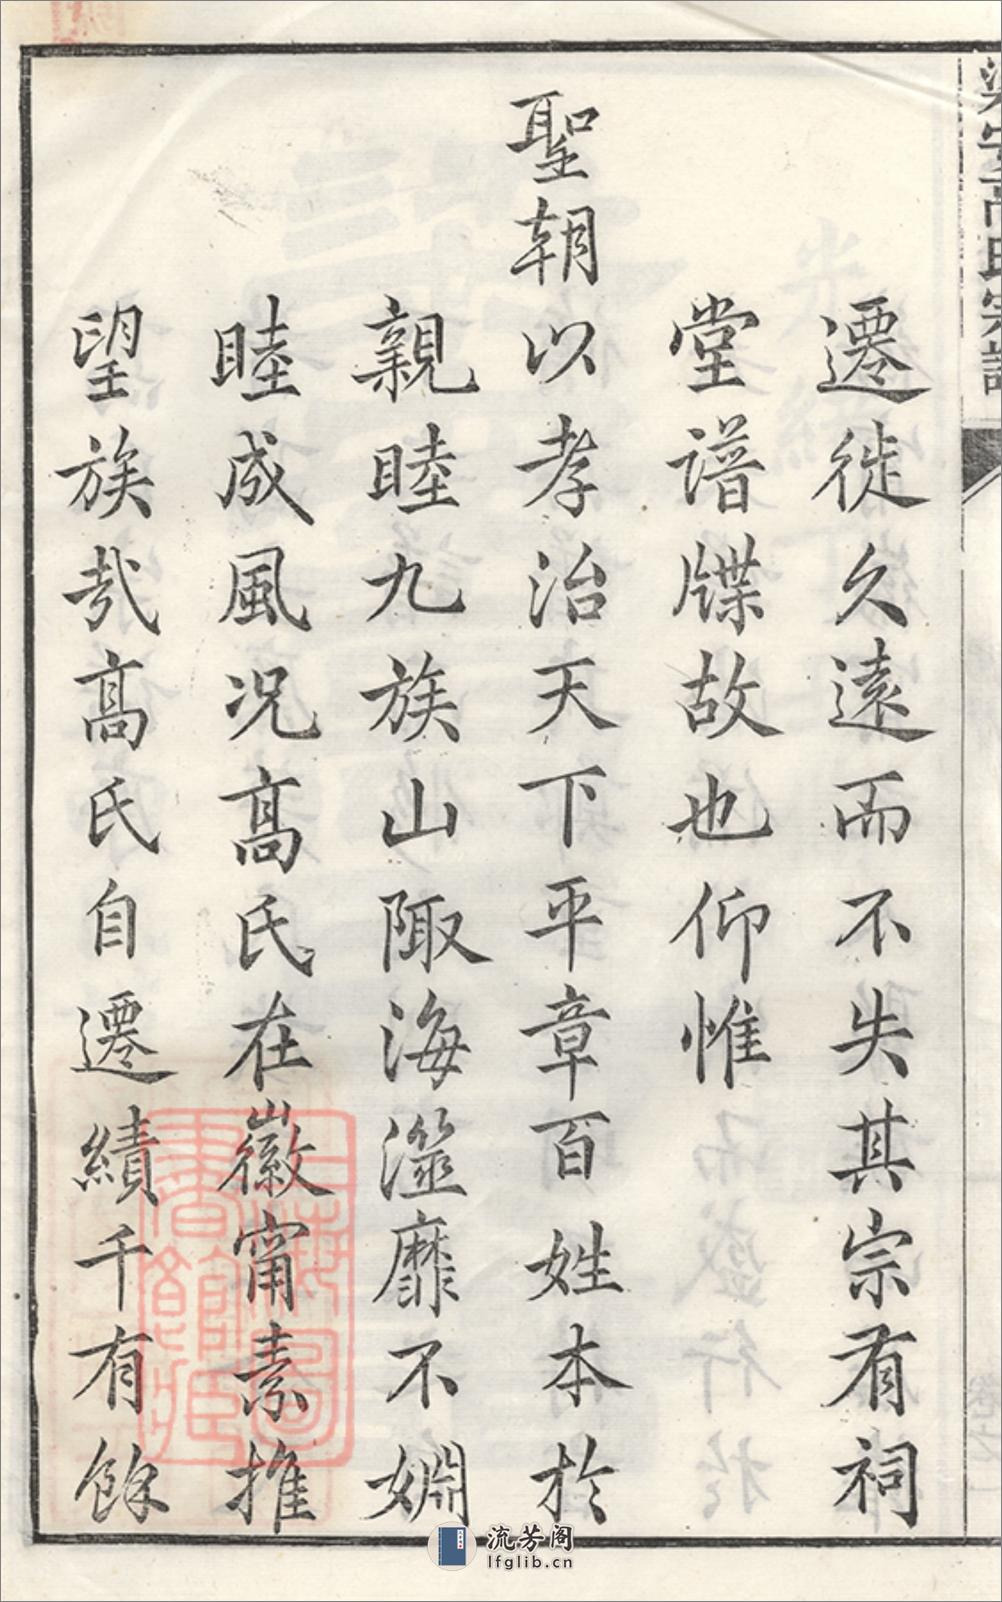 梁安高氏宗譜
遷徙久遠而不失其宗有祠
堂譜牒故也仰惟
聖朝以孝治天下平章百姓本於
親睦九族山陬海澨靡不婣
睦成風況髙氏在徽甯素推
望族㢤髙氏自遷績千有餘
上海圖書館藏
流芳阁
lfglib.cn